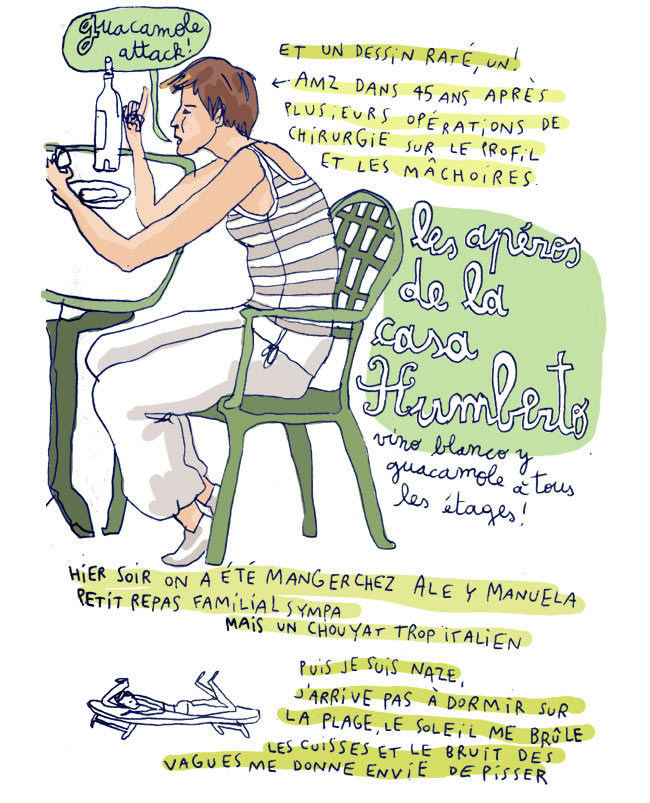 guacamole
attack!
ET UN DESSIN RATÉ, UN!
← AMZ DANS 45 ANS APRÈS
PLUSIEURS OPÉRATIONS DE
CHIRURGIE SUR LE PROFIL
ET LES MÂCHOIRES.
les apéros
de la
casa
Humberto
vino blanco y
guacamole à tous
les étages!
HIER SOIR ON A ÉTÉ MANGER CHEZ ALE Y MANUELA
PETIT REPAS FAMILIAL SYMPA
MAIS UN CHOUYAT TROP ITALIEN
PUIS JE SUIS NAZE,
J'ARRIVE PAS À DORMIR SUR
LA PLAGE, LE SOLEIL ME BRÛLE
LES CUISSES ET LE BRUIT DES
VAGUES ME DONNE ENVIE DE PISSER